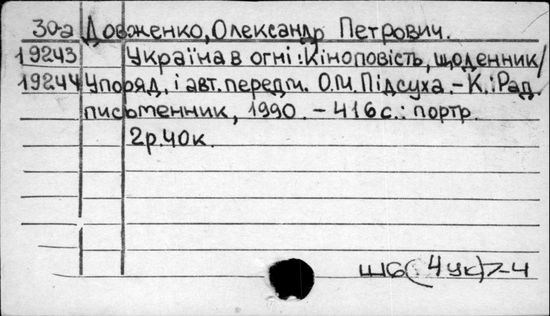 30-а Довженко, Олександр Петрович.
19243 Україна в огні: Кіноповість, щоденник/
19244 Упоряд. і авт. передм. О.М. Підсуха. – К.: Рад.
письменник, 1990. – 416 с.: портр.
2р.40к.
Ш6(4Ук)7-4